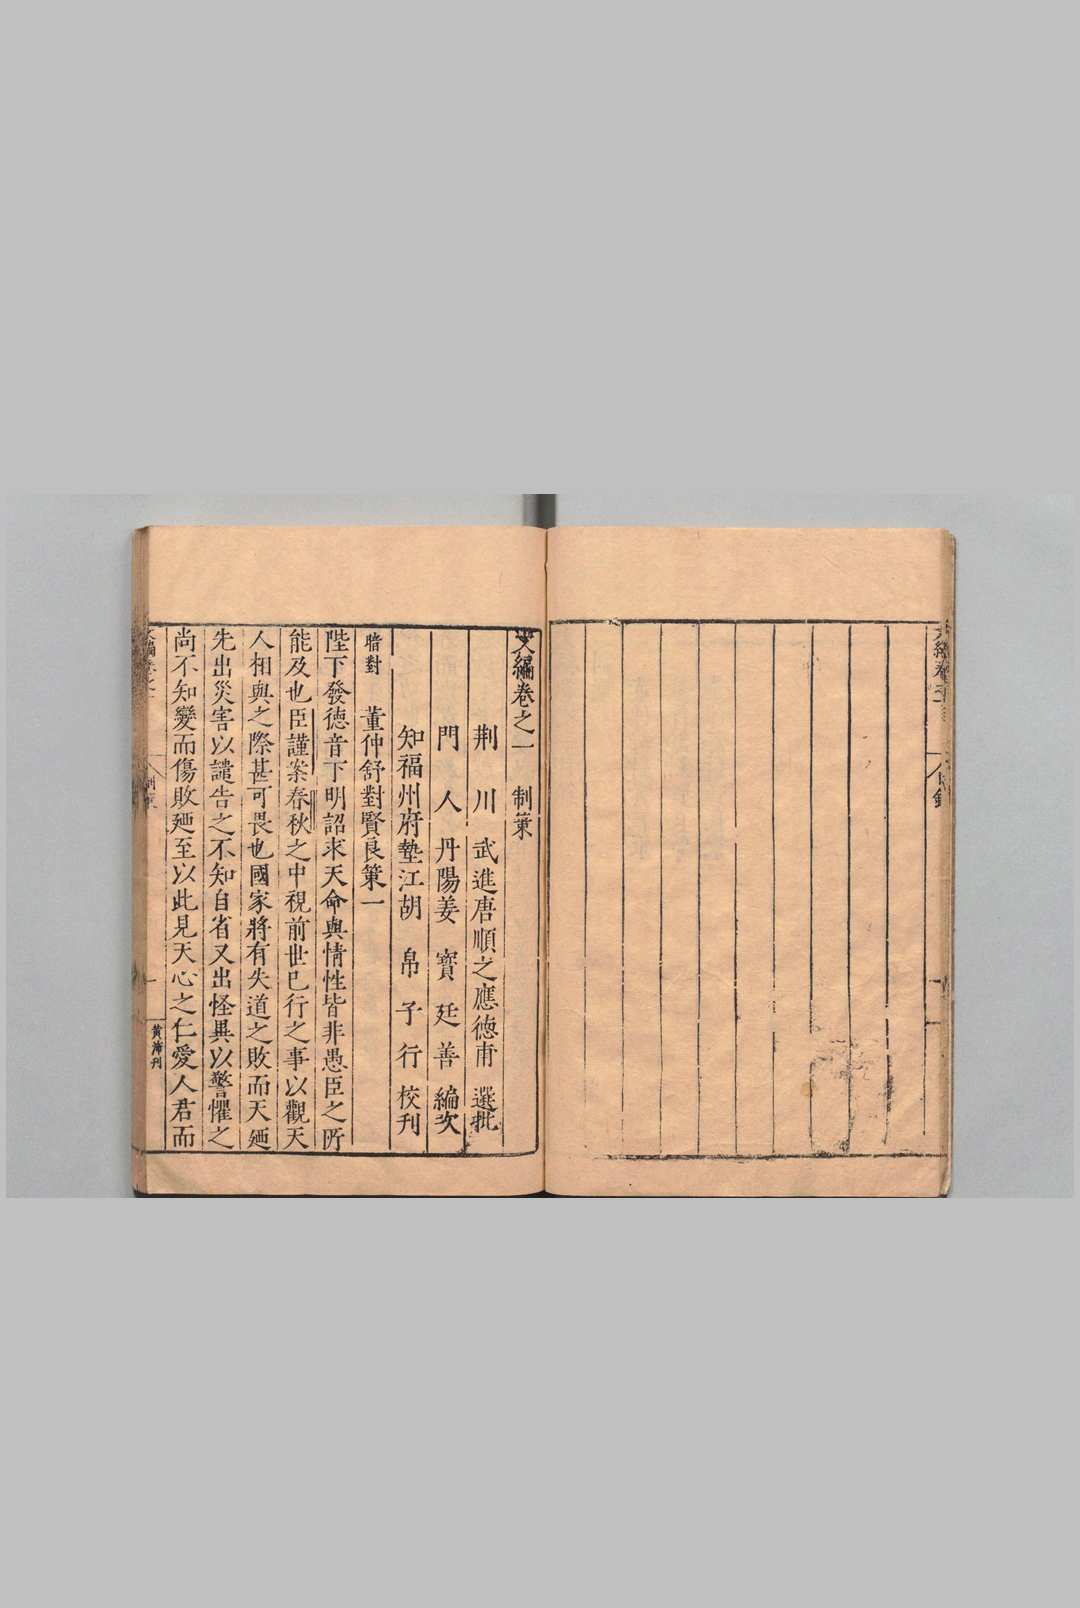 文編卷之一 制策
荆川 武進唐順之應德甫 選批
門人 丹陽姜 寳廷善 編次
知福州府墊江胡 帛子行 校刊
暗對 董仲舒對賢良策一
陛下發德音下明詔求天命與情性皆非愚臣之所
能及也臣謹案春秋之中視前世已行之事以觀天
人相與之際甚可畏也國家將有失道之敗而天廼
先出災害以譴告之不知自省又出怪異以警懼之
尚不知變而傷敗廼至以此見天心之仁愛人君而
黃浦刊